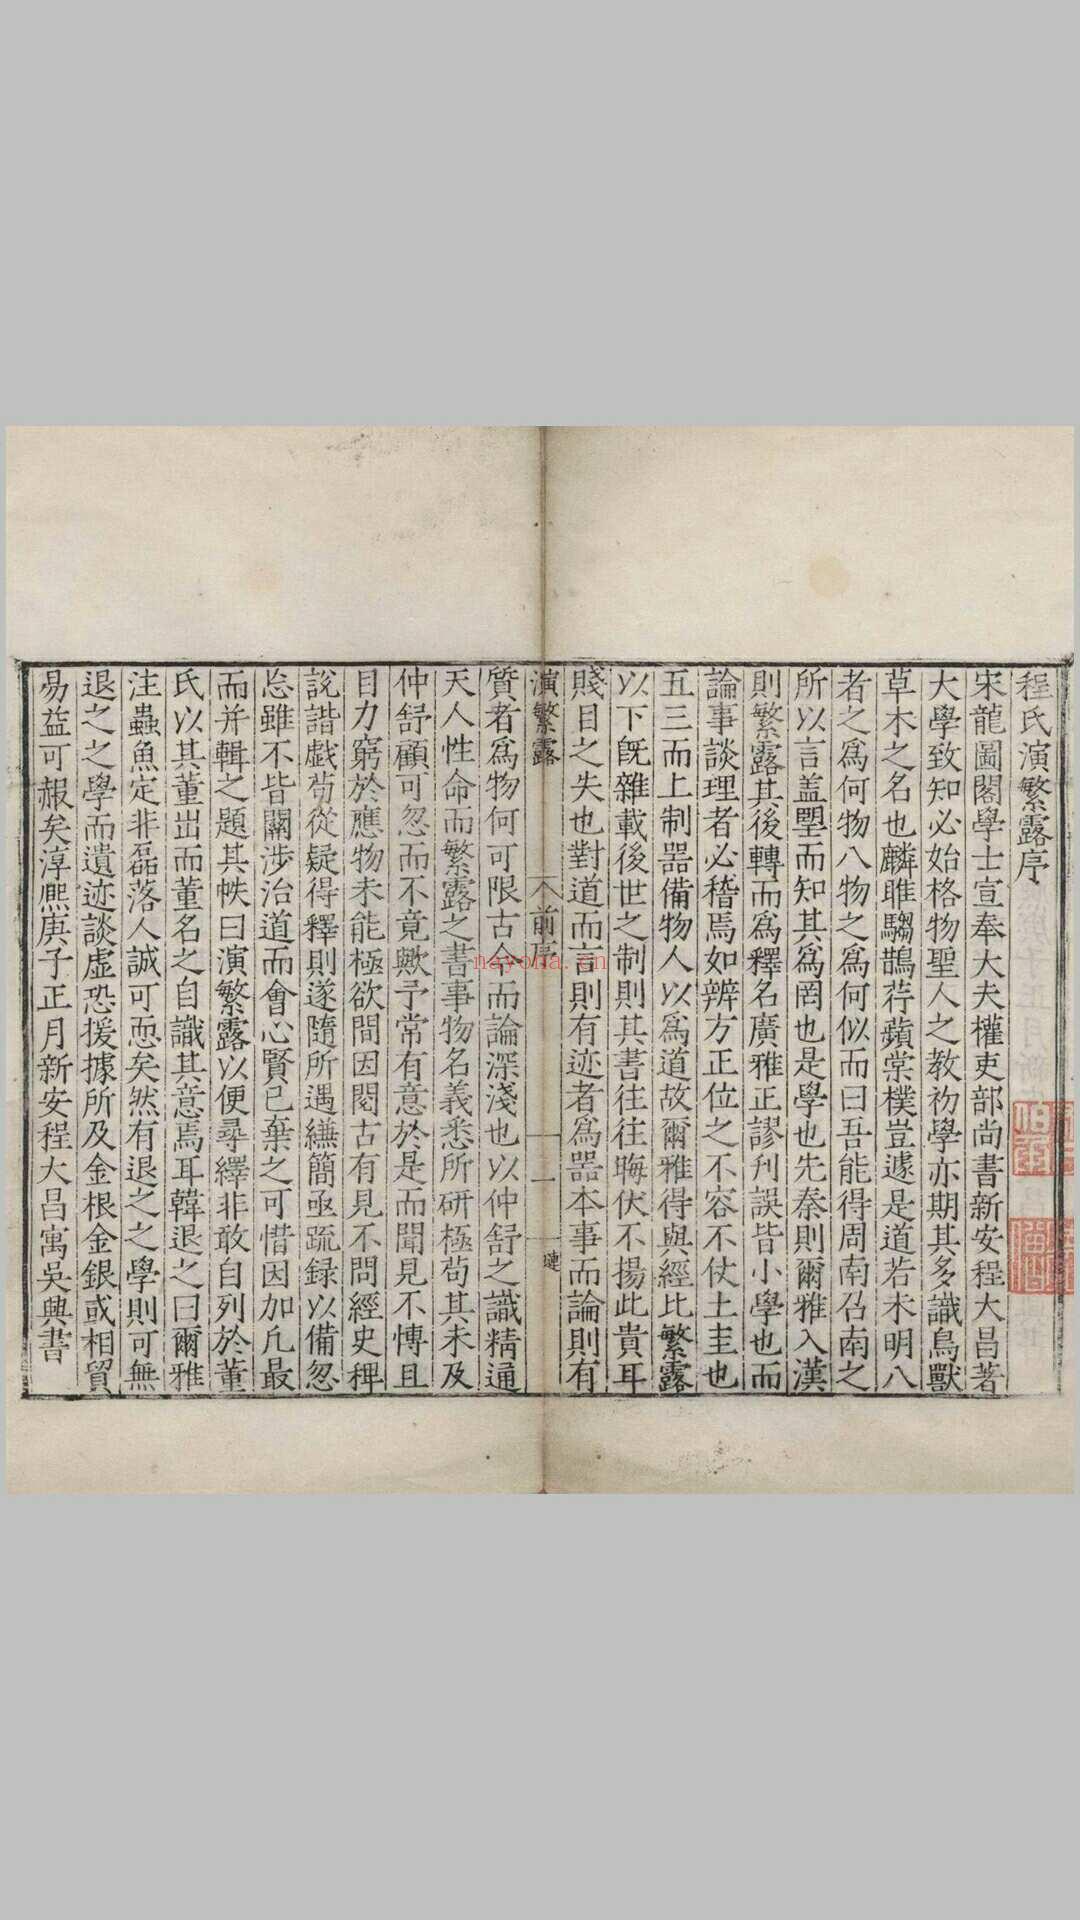 程氏演繁露序
宋龍圖閣學士宣奉大夫權吏部尚書新安程大昌著
大學致知必始格物聖人之教初學亦期其多識鳥獸
草木之名也麟雎騶鵲荇蘋棠樸豈遽是道若未明八
者之爲何物八物之爲何似而曰吾能得周南召南之
所以言盖墍而知其爲罔也是學也先秦則爾雅入漢
則繁露其後轉而爲釋名廣雅正謬刊誤皆小學也而
論事談理者必稽焉如辨方正位之不容不仗土圭也
五三而上制器備物人以爲道故爾雅得與經比繁露
以下旣雜載後世之制則其書往往晦伏不揚此貴耳
賤目之失也對道而言則有迹者爲器本事而論則有
演繁露
前序
一
璉
質者爲物何可限古今而論深淺也以仲舒之識精通
天人性命而繁露之書事物名義悉所研極苟其未及
仲舒顧可忽而不竟歟予常有意於是而聞見不慱且
目力窮於應物未能極欲間因閱古有見不問經史稗
說諧戯苟從疑得釋則遂隨所遇縑簡亟疏録以備忽
忘雖不皆關涉治道而會心賢已棄之可惜因加凢最
而并輯之題其帙曰演繁露以便尋繹非敢自列於董
氏以其董出而董名之自識其意焉耳韓退之曰爾雅
注蟲魚定非磊落人誠可恧矣然有退之之學則可無
退之之學而遺迹談虛恐援據所及金根金銀或相貿
易益可赧矣淳熈庚子正月新安程大昌寓吳興書
nayona.cn